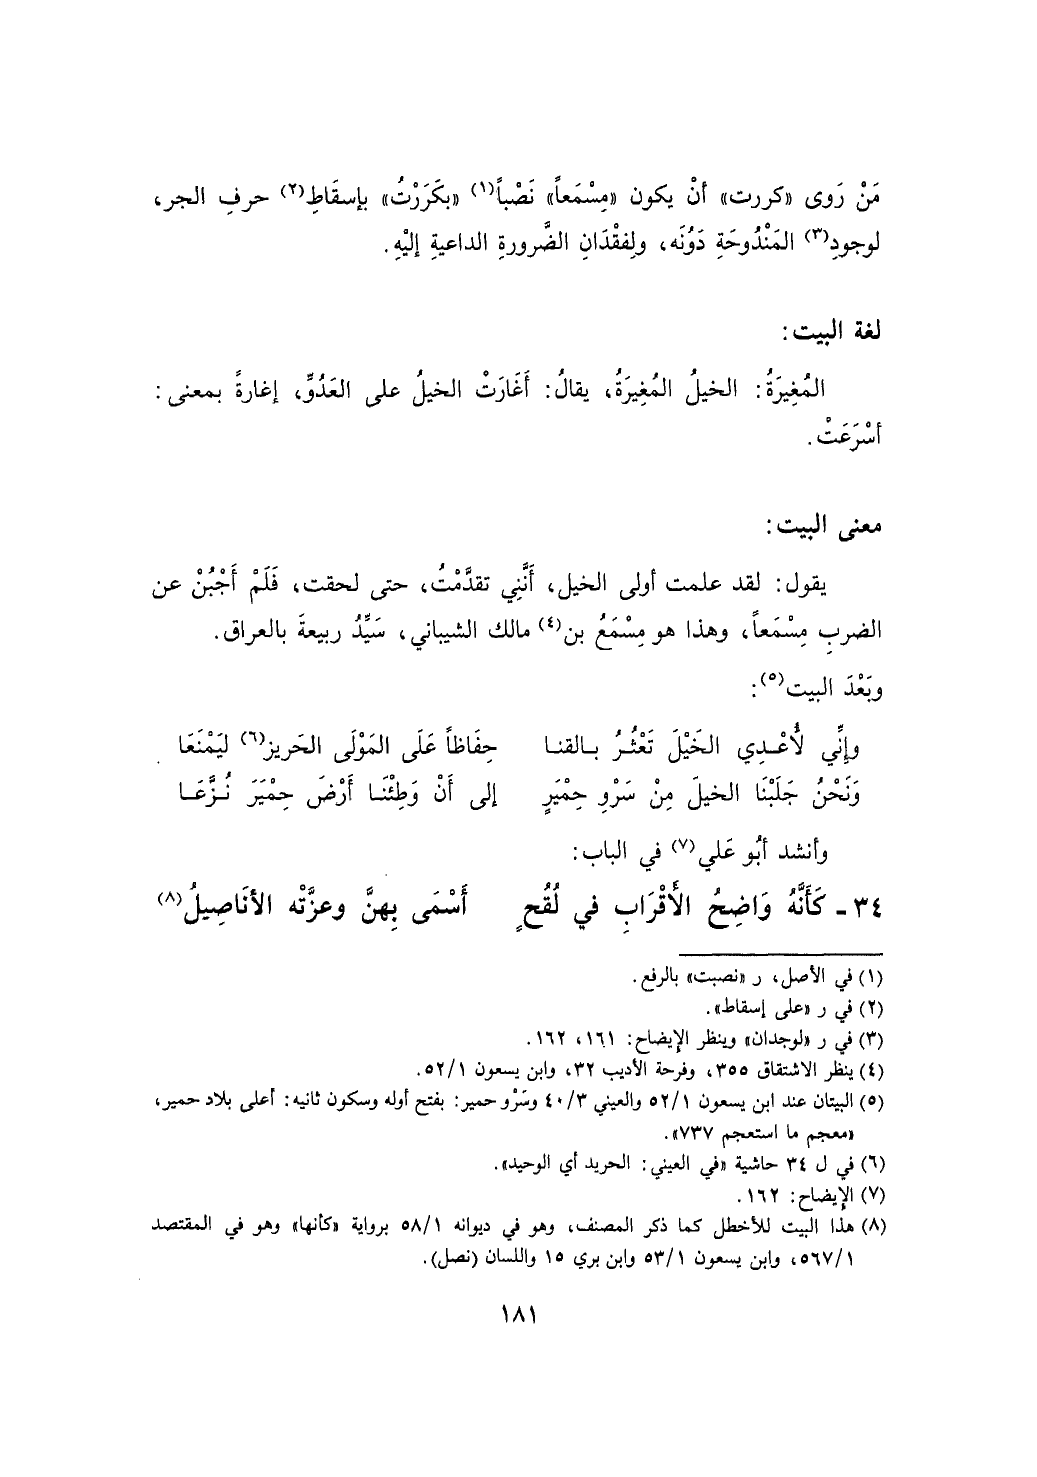 مَنْ رَوى «كررت» أنْ يكون «مِسْمَعاً» نَصْباً(١) «بكَرَرْتُ» بإسقَاطِ(٢) حرفِ الجر،
لوجودِ(٣) المَنْدُوحَةِ دَوُنَه، ولِفقْدَانِ الضَّرورةِ الداعيةِ إليْهِ.
لغة البيت:
المُغِيرَةُ: الخيلُ المُغِيرَةُ، يقالُ: أَغَارَتْ الخيلُ على العَدُوِّ، إغارةً بمعنى:
أسْرَعَتْ.
معنى البيت:
يقول: لقد علمت أولى الخيل، أَنَّنِي تقدَّمْتُ، حتى لحقت، فَلَمْ أَجْبُنْ عن
الضربِ مِسْمَعاً، وهذا هو مِسْمَعُ بن(٤) مالك الشيباني، سَيِّدُ ربيعةَ بالعراق.
وبَعْدَ البيت(٥):
وإنِّي لأُعْـدِي الخَيْلَ تَعْثُـرُ بـالقنـا حِفَاظاً عَلَى المَوْلَى الحَريز(٦) ليَمْنَعَا
وَنَحْنُ جَلَبْنَا الخيلَ مِنْ سَرْوِ حِمْيَرٍ إلى أَنْ وَطِئْنَـا أَرْضَ حِمْيَرَ نُـزَّعَـا
وأنشد أبُو عَلي(٧) في الباب:
٣٤ - كَأَنَّهُ وَاضِحُ الأَقْرَابِ في لُقُحٍ أَسْمَى بِهنَّ وعزَّتْه الأنَاصِيلُ(٨)
(١) في الأصل، ر «نصبت» بالرفع.
(٢) في ر «على إسقاط».
(٣) في ر «لوجدان» وينظر الإيضاح: ١٦١، ١٦٢.
(٤) ينظر الاشتقاق ٣٥٥، وفرحة الأديب ٣٢، وابن يسعون ٥٢/١.
(٥) البيتان عند ابن يسعون ٥٢/١ والعيني ٤٠/٣ وسَرْو حمير: بفتح أوله وسكون ثانيه: أعلى بلاد حمير،
«معجم ما استعجم ٧٣٧».
(٦) في ل ٣٤ حاشية «في العيني: الحريد أي الوحيد».
(٧) الإيضاح: ١٦٢.
(٨) هذا البيت للأخطل كما ذكر المصنف، وهو في ديوانه ٥٨/١ برواية «كأنها» وهو في المقتصد
٥٦٧/١، وابن يسعون ٥٣/١ وابن بري ١٥ واللسان (نصل).
١٨١